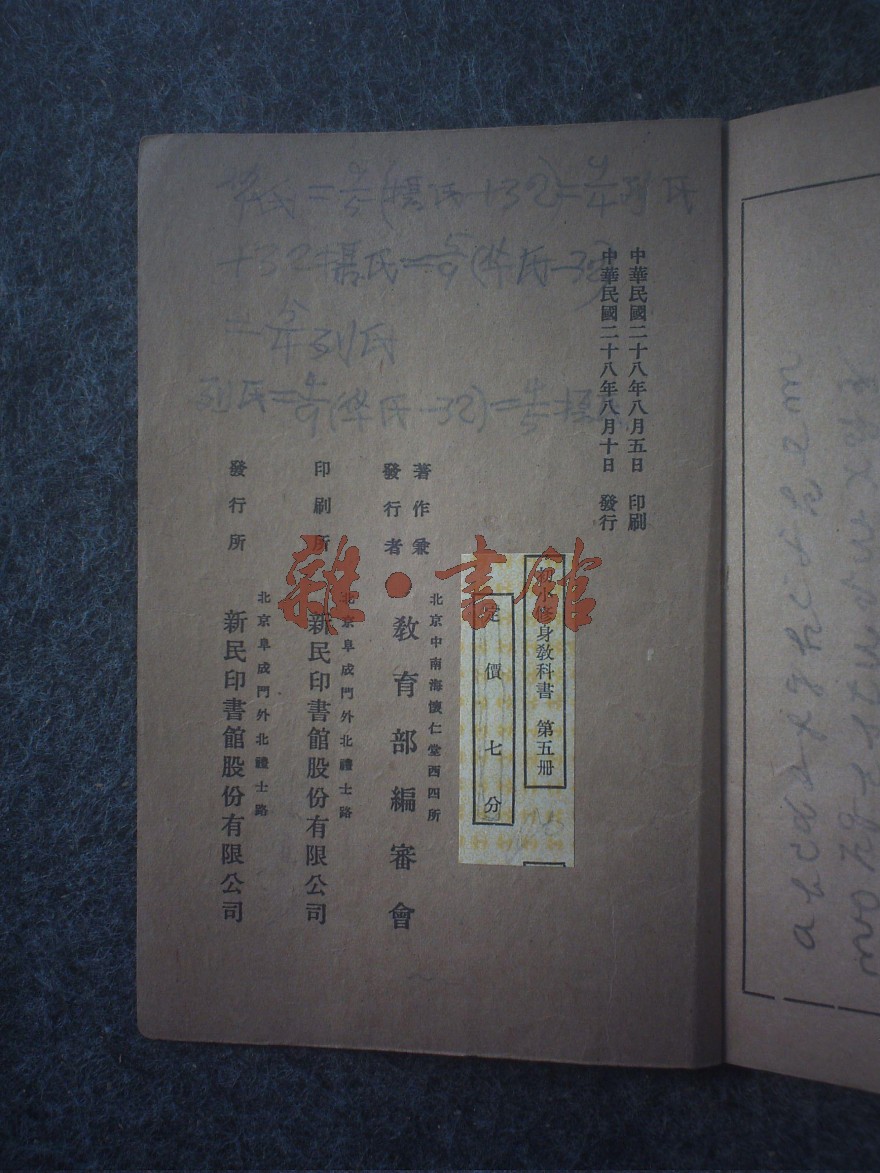 中華民國二十八年八月五日 印刷
中華民國二十八年八月十日 發行
修身教科書 第五冊
定價七分
著作兼
發行者
北京中南海懷仁堂西四所
教育部編審會
印刷所
北京阜成門外北禮士路
新民印書館股份有限公司
發行所
北京阜成門外北禮士路
新民印書館股份有限公司
雜·書館
+32 攝氏=5/9(华氏-32)
列氏=4/9(华氏-32)=4/5攝